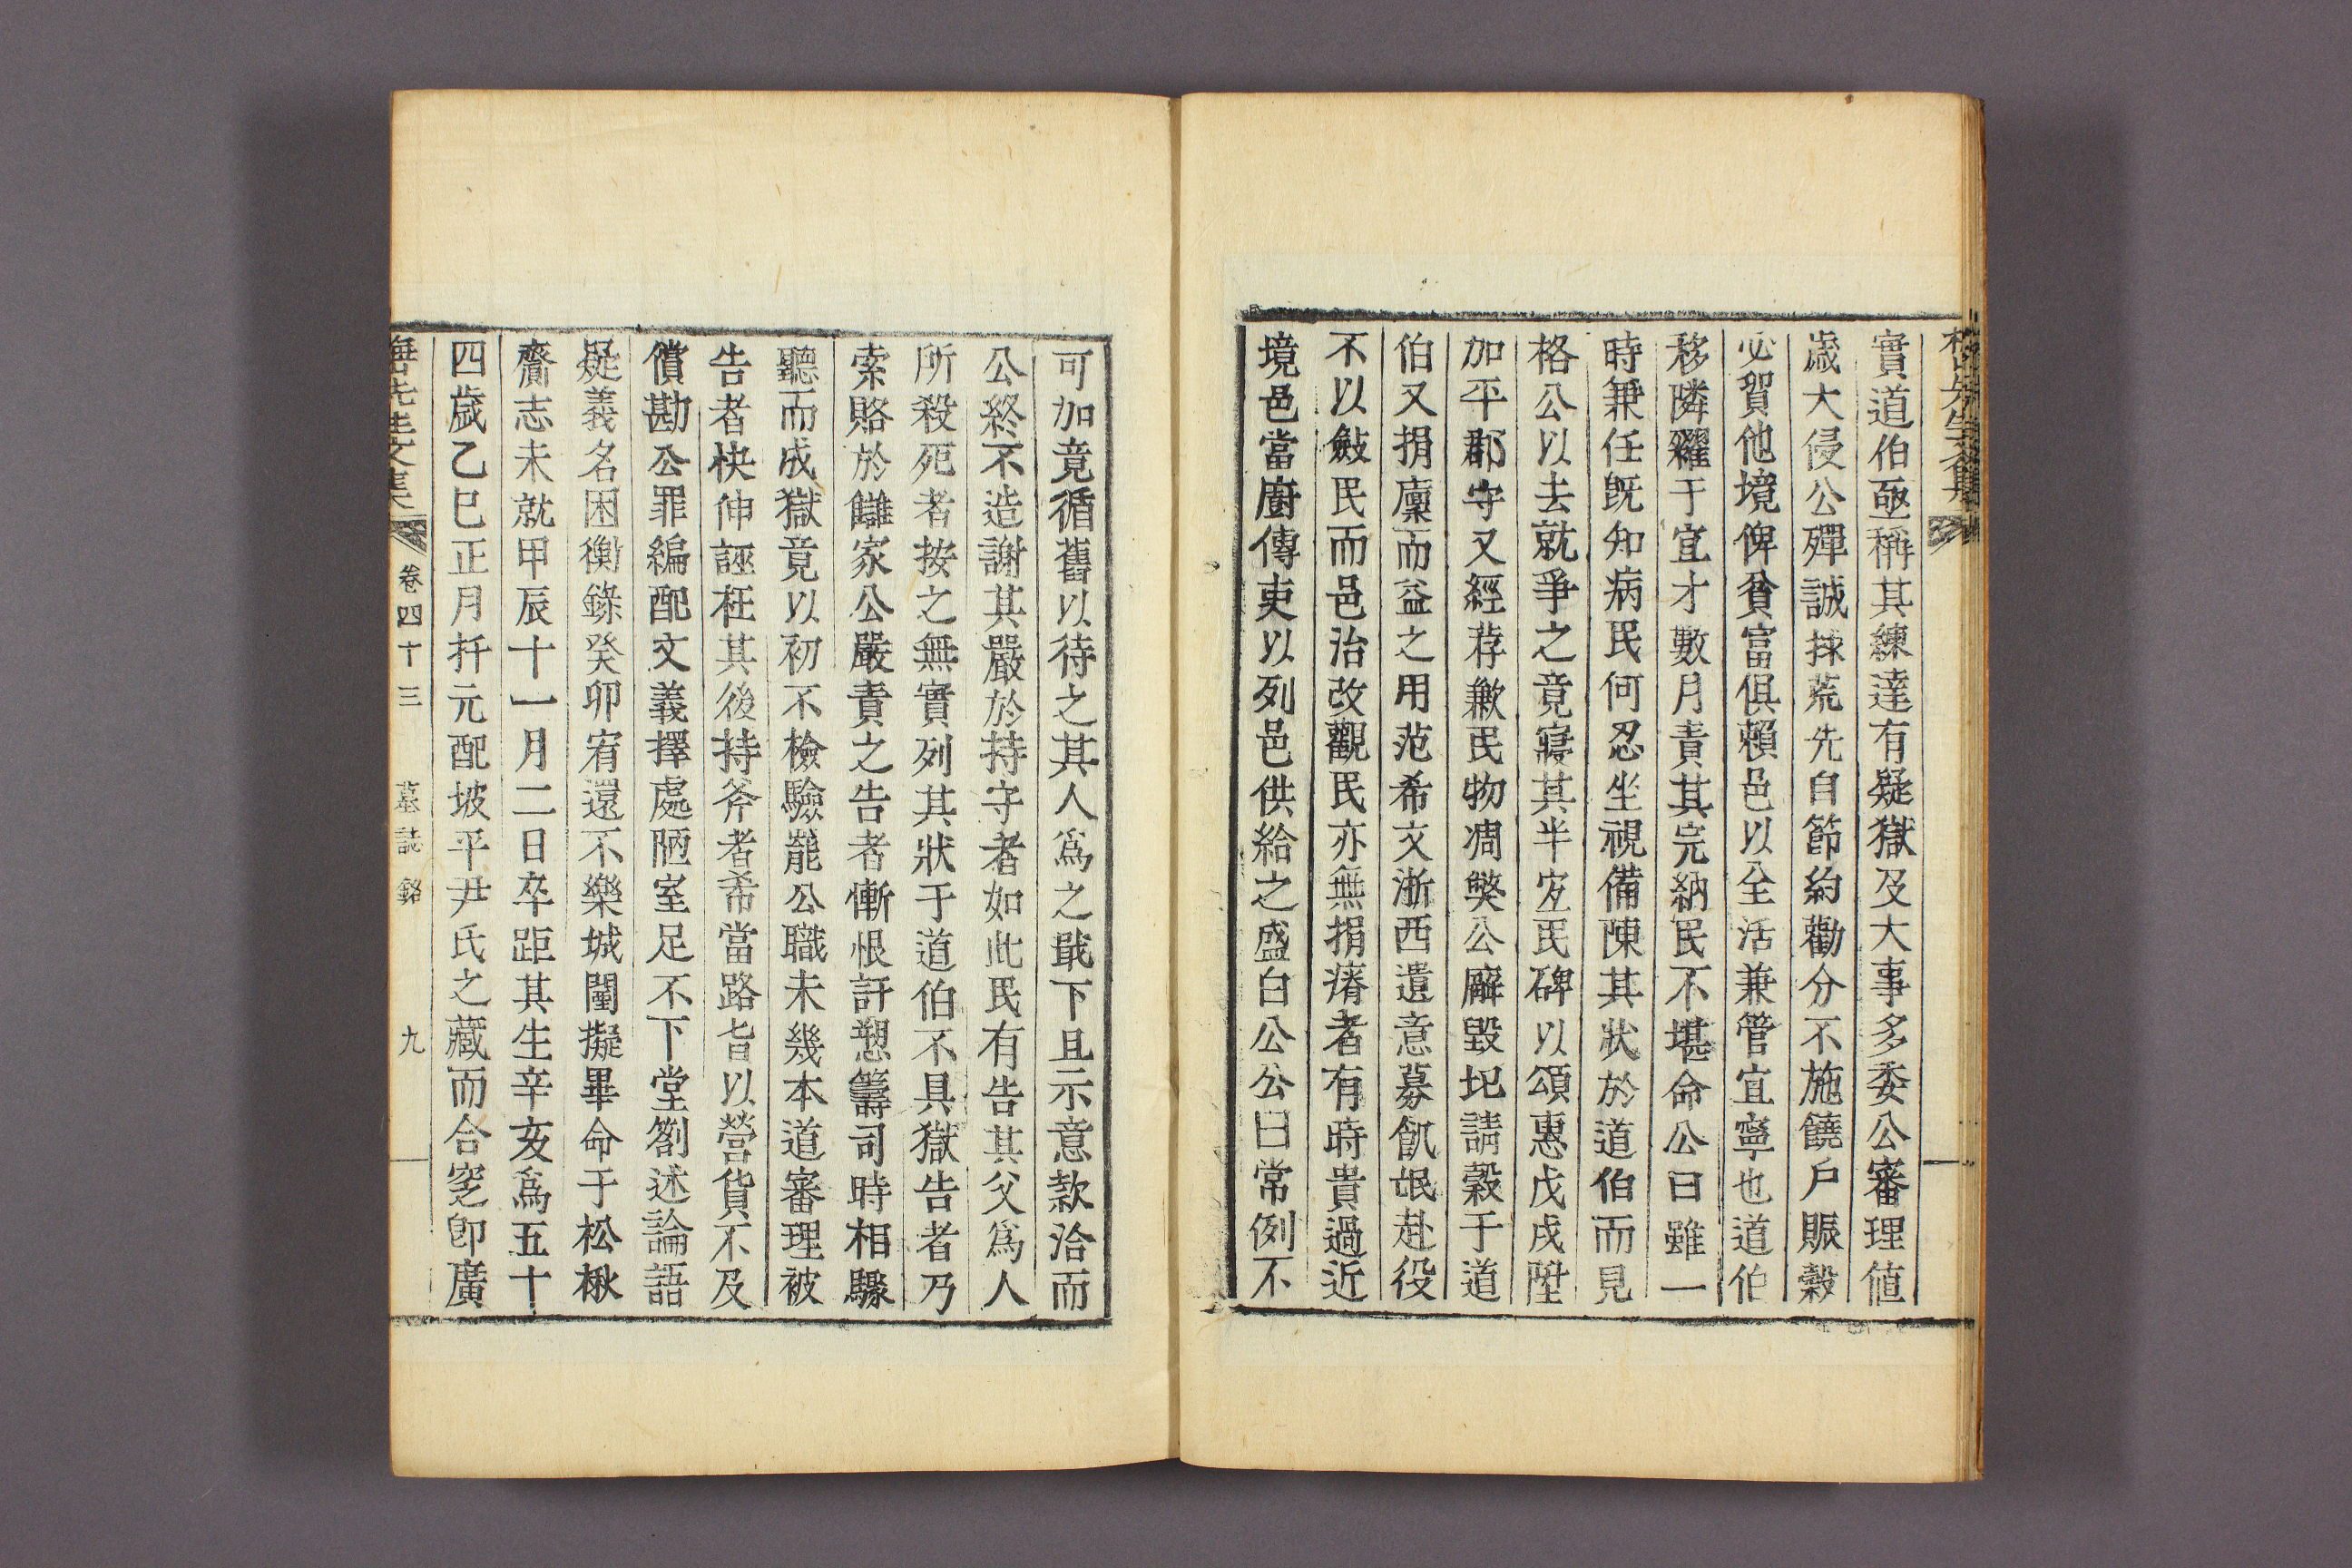 實道伯亟稱其練達有疑獄及大事多委公審理値
歲大侵公殫誠捄荒先自節約勸分不施饒戶賑穀
必貿他境俾貧富俱賴邑以全活兼管宜寧也道伯
移隣糴于宜才數月責其完納民不堪命公曰雖一
時兼任旣知病民何忍坐視備陳其狀於道伯而見
格公以去就爭之竟寢其半宜民碑以頌惠戊戌陞
加平郡守又經荐歉民物凋弊公廨毀圮請穀于道
伯又捐廩而益之用范希文浙西遺意募飢氓赴役
不以斂民而邑治改觀民亦無捐瘠者有時貴過近
境邑當廚傳吏以列邑供給之盛白公公曰常例不
可加竟循舊以待之其人爲之戢下且示意款洽而
公終不造謝其嚴於持守者如此民有告其父爲人
所殺死者按之無實列其狀于道伯不具獄告者乃
索賂於讎家公嚴責之告者慚恨訐愬籌司時相驟
聽而成獄竟以初不檢驗罷公職未幾本道審理被
告者快伸誣枉其後持斧者希當路旨以營貨不及
償勘公罪編配文義擇處陋室足不下堂劄述論語
疑義名困衡錄癸卯宥還不樂城闉擬畢命于松楸
齎志未就甲辰十一月二日卒距其生辛亥爲五十
四歲乙巳正月扦元配坡平尹氏之藏而合窆卽廣
先生文集 卷四十三 墓誌銘 九